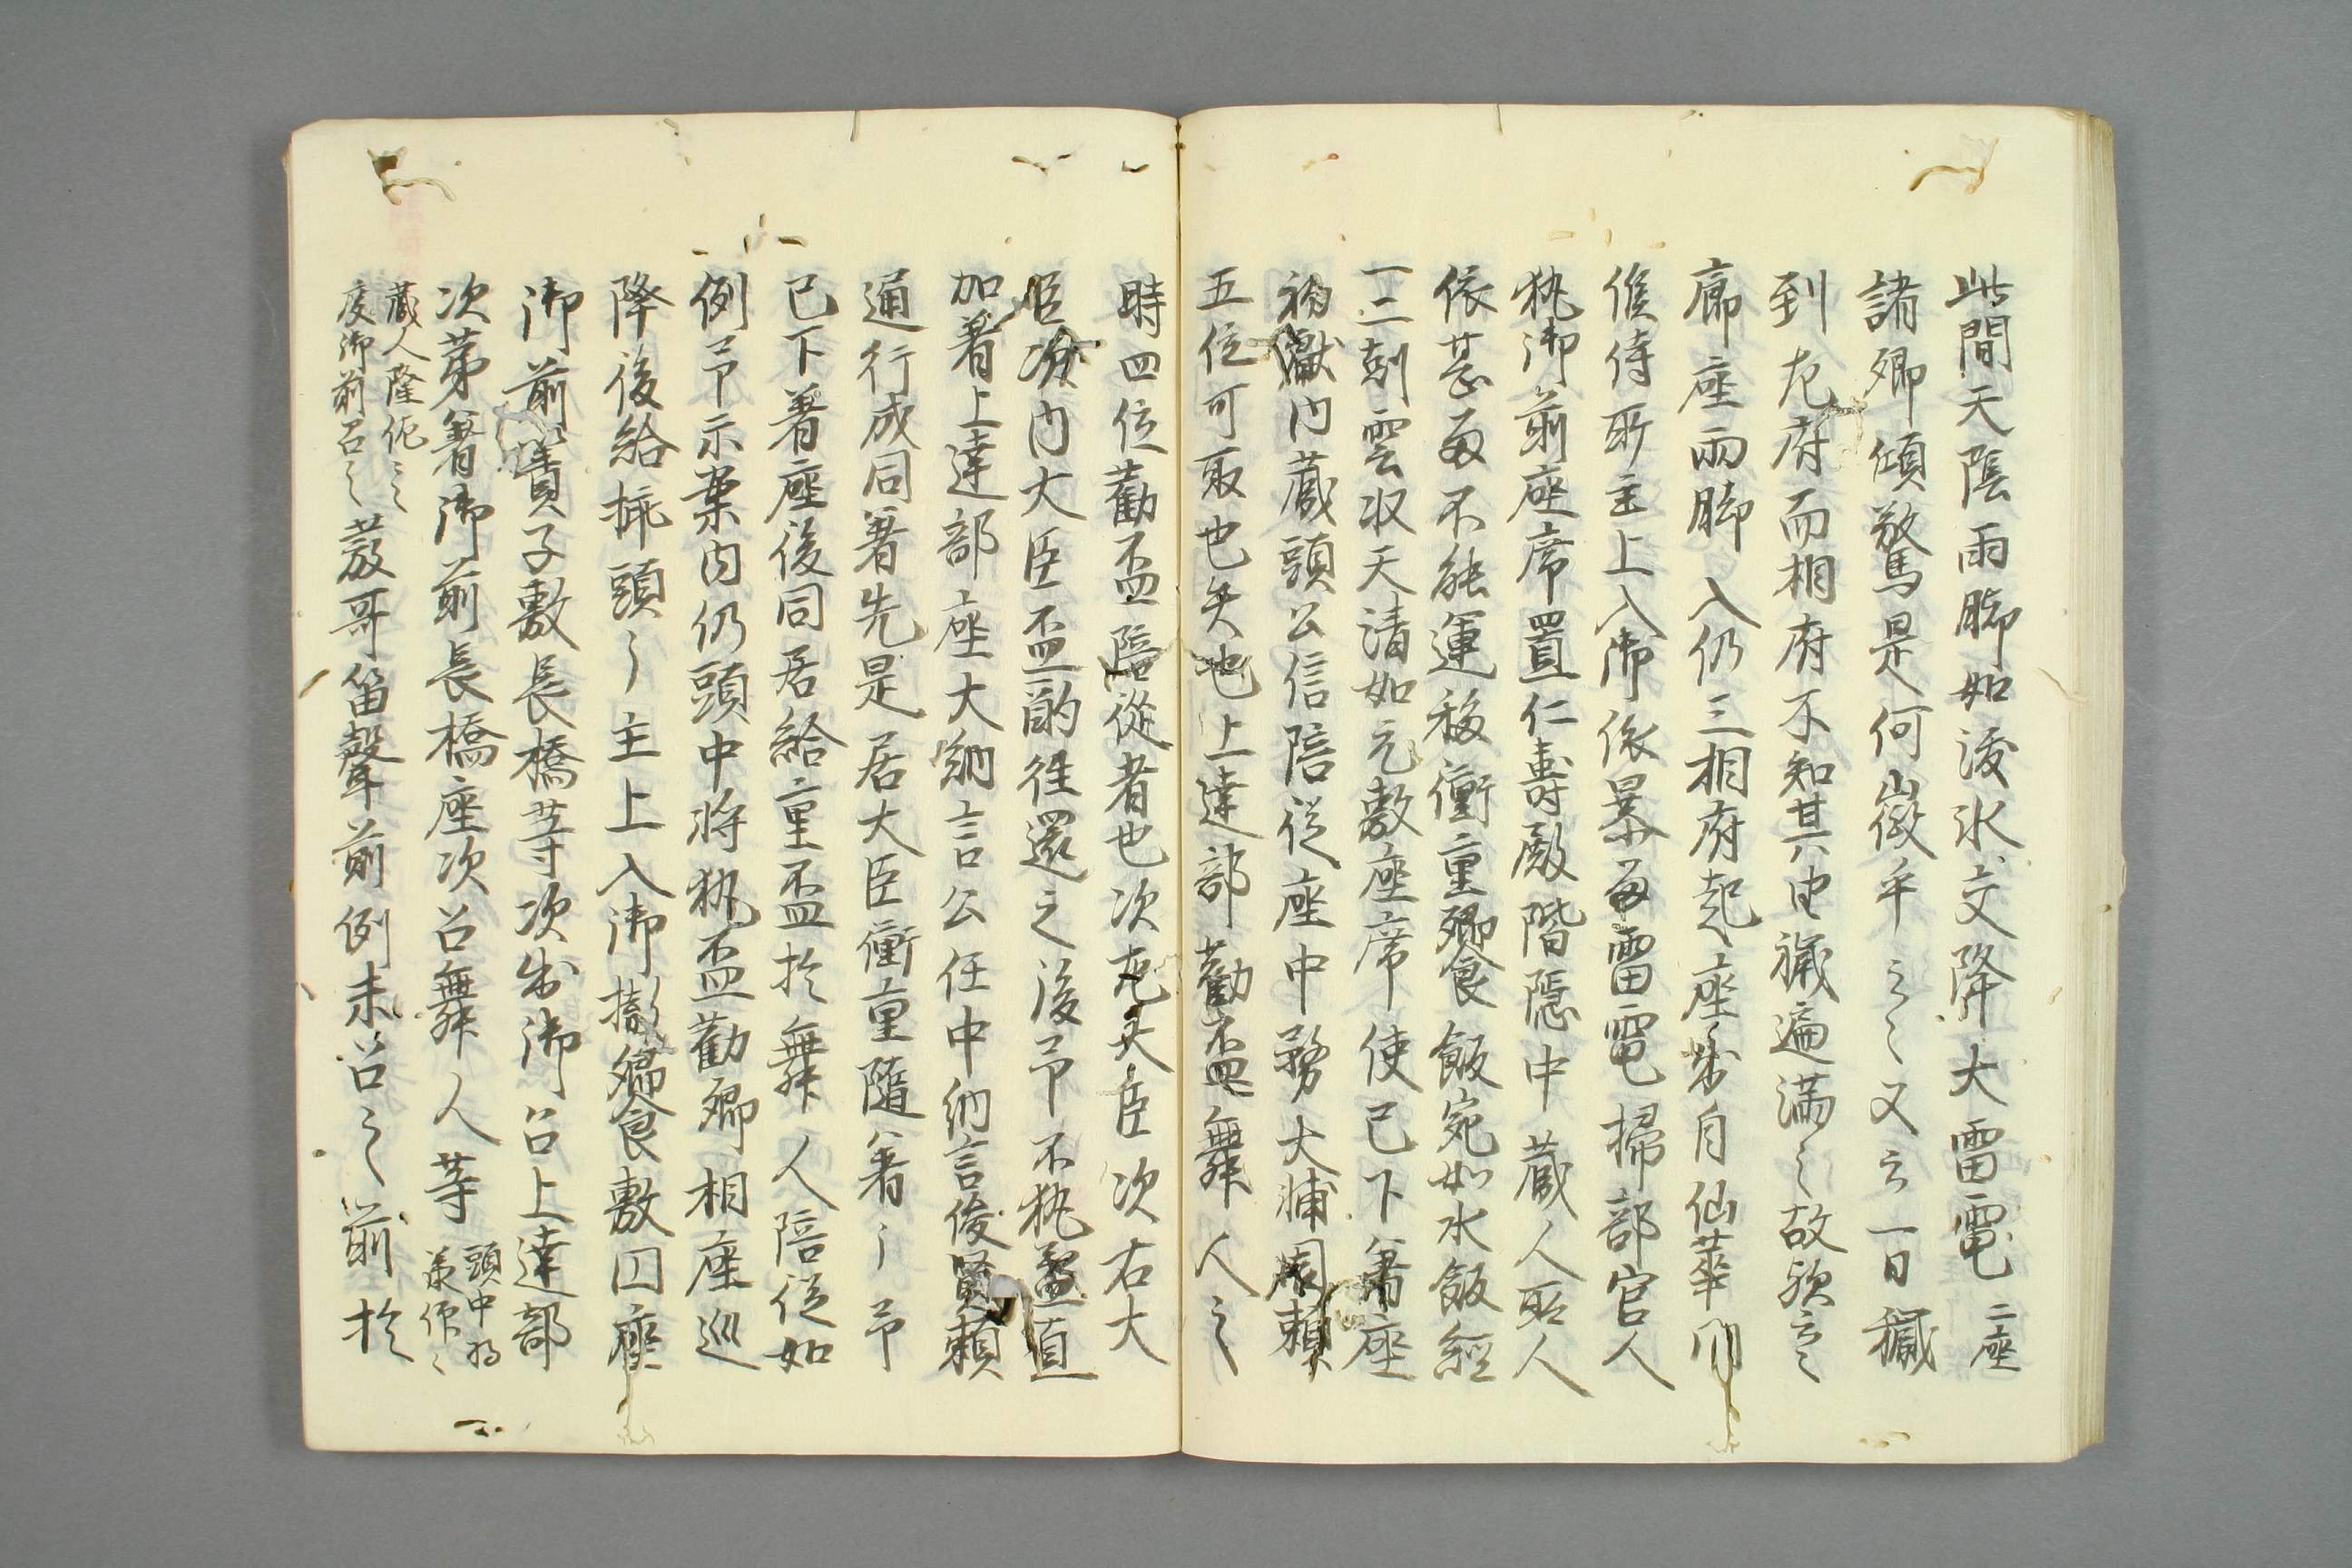 此間天陰雨脚如淩氷交降大雷電二座
諸卿傾驚是何徴乎云々又云一日穢
到左府而相府不知其由穢遍満云々故歟云々
廊座雨脚入仍三相府起座出自仙華門
候侍所主上入御依暴雨雷電掃部官人
執御前座席置仁壽殿階隠中蔵人所人
依甚雨不能運移衝重饗食飯宛如水飯経
一二剋雲収天清如元敷座席使已下着座
初獻内蔵頭公信陪従座中務大輔周頼
五位可取也失也上達部勸盃舞人之
時四位勸盃陪從者也次左大臣次右大
臣次内大臣盃酌徃還之後予不執盃直
加着上達部座大納言公任中納言俊賢頼
通行成同着先是居大臣衝重隨着々予
已下着座後同居給重盃於舞人陪従如
例予示案内仍頭中将執盃勸卿相座巡
降後給挿頭々主上入御撤饗食敷円座
御前簀子敷長橋等次出御召上達部
次第着御前長橋座次召舞人等頭中将
奉仰々
蔵人隆佐云々
度御前召之發哥笛聲前例未召之前於